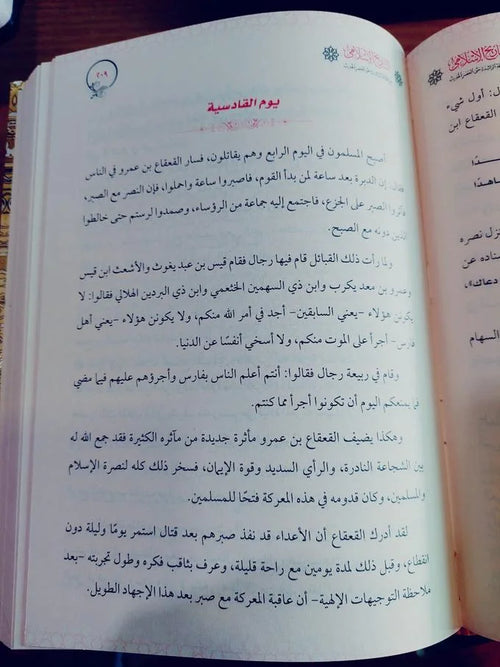 التاريخ الإسلامي
٢٠٩
يوم القادسية
أصبح المسلمون في اليوم الرابع وهم يقاتلون، فسار القعقاع بن عمرو في الناس
فقال: إن الدبرة بعد ساعة لمن بدأ القوم، فاصبروا ساعة واحملوا، فإن النصر مع الصبر،
فآثروا الصبر على الجزع، فاجتمع إليه جماعة من الرؤساء، وصمدوا لرستم حتى خالطوا
الذين دونه مع الصبح.
ولما رأت ذلك القبائل قام فيها رجال فقام قيس بن عبد يغوث والأشعث ابن قيس
وعمرو بن معد يكرب وابن ذي السهمين الخثعمي وابن ذي البردين الهلالي فقالوا: لا
يكونن هؤلاء -يعني السابقين- أجد في أمر الله منكم، ولا يكونن هؤلاء -يعني أهل
فارس- أجرأ على الموت منكم، ولا أسخي أنفسًا عن الدنيا.
وقام في ربيعة رجال فقالوا: أنتم أعلم الناس بفارس وأجرؤهم عليهم فيما مضي
فما يمنعكم اليوم أن تكونوا أجرأ مما كنتم.
وهكذا يضيف القعقاع بن عمرو مأثرة جديدة من مآثره الكثيرة فقد جمع الله له
بين الشجاعة النادرة، والرأي السديد وقوة الإيمان، فسخر ذلك كله لنصرة الإسلام
والمسلمين، وكان قدومه في هذه المعركة فتحًا للمسلمين.
لقد أدرك القعقاع أن الأعداء قد نفذ صبرهم بعد قتال استمر يومًا وليلة دون
انقطاع، وقبل ذلك لمدة يومين مع راحة قليلة، وعرف بثاقب فكره وطول تجربته -بعد
ملاحظة التوجيهات الإلهية- أن عاقبة المعركة مع صبر بعد هذا الإجهاد الطويل.
ل: أول شيء
القعقاع ابن
نزل نصره
ناده عن
دعاك»،
السهام